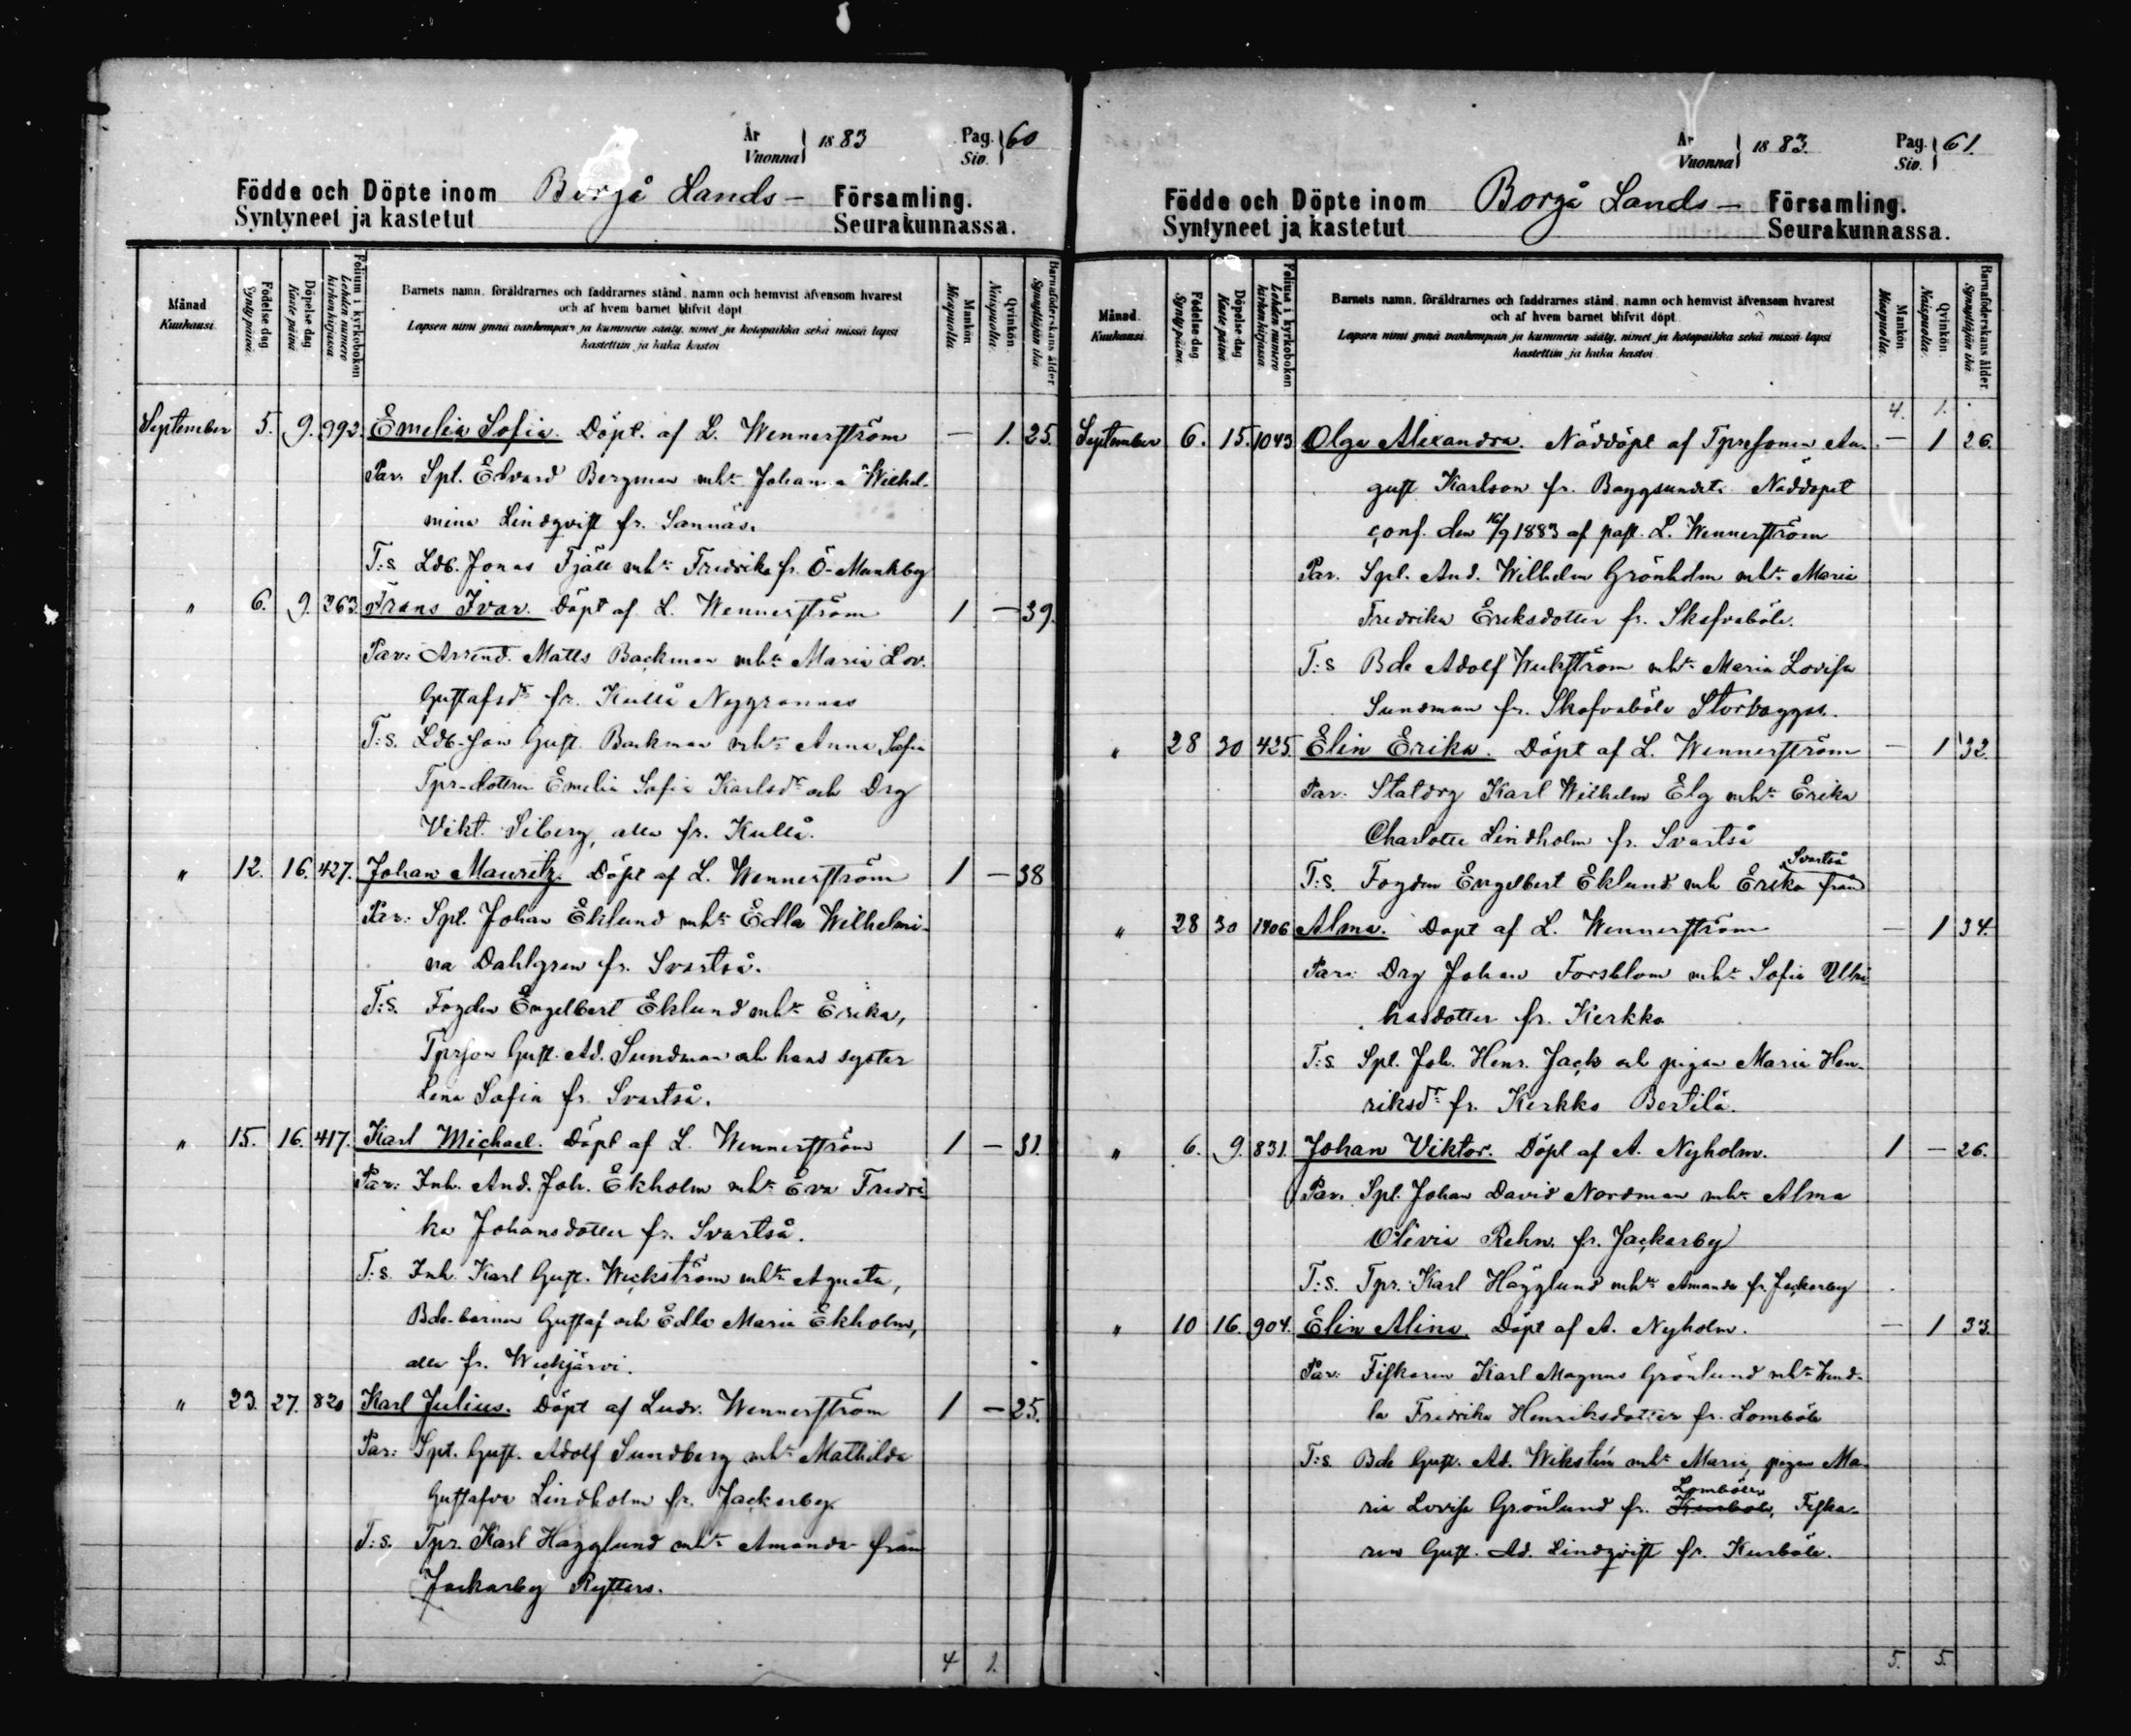 År
Vuonna 1883 Pag. Siv. 60
Födde och Döpte inom Borgå Lands- Församling.
Syntyneet ja kastetut Seurakunnassa.
Månad Kuukausi
Födelse-dag Synty päivä.
Döpelse-dag Kaste päivä
Folium i kyrkoboken Lehden numero kirkonkirjassa
Barnets namn, föräldrarnes och faddrarnes stånd, namn och hemvist äfvensom hvarest
och af hvem barnet blifvit döpt
Lapsen nimi ynnä vanhempain ja kummein sääty, nimet ja kotopaikka sekä missä lapsi
kastettiin ja kuka kastoi
Mankön Miespuolta
Qvinkön. Naispuolta.
Barnaföderskans ålder Synnyttäjän ikä
September 5. 9. 992. Emelia Sofia. Döpt. af L. Wennerström — 1. 25.
Par. Spl. Edvard Bergman mhr Johanna Wilhel-
mina Lindqvist fr. Sannäs.
T:s Ldb. Jonas Fjäll mhr Fredrika fr. Ö-Munkby
" 6. 9. 363. Frans Ivar. Döpt af L. Wennerström 1 — 39.
Par: Arrend. Matts Backman mhr Maria Lov.
Gustafsdr fr. Kullå Nygrannas
T:s. Ldb-son Gust. Backman mhr Anna Sofia
Tpr-dottren Emelia Sofia Karlsdr och Drg
Vikt. Siberg, alla fr. Kullå.
" 12. 16. 427. Johan Mauritz. Döpt af L. Wennerström 1 — 38
Par: Spl. Johan Eklund mhr Edla Wilhelmi-
na Dahlgren fr. Svartså.
T:s. Fogden Engelbert Eklund mhr Erika,
Tprson Gust. Ad. Sundman och hans syster
Lena Sofia fr. Svartså.
" 15. 16. 417. Karl Michael. Döpt af L. Wennerström 1 — 31.
Par: Inh. And. Joh. Ekholm mhr Eva Fredri
ka Johansdotter fr. Svartså.
T:s. Inh. Karl Gust. Wickström mhr Agneta,
Bde-barnen Gustaf och Edla Maria Ekholm,
alla fr. Wickjärvi.
" 23. 27. 820 Karl Julius. Döpt af Ludv. Wennerström 1 — 25.
Par: Spl. Gust. Adolf Sundberg mhr Mathilda
Gustafva Lindholm fr. Jackarby.
T:s. Tpr. Karl Hägglund mhr Amanda från
Jackarby Rytters.
4 1.
År
Vuonna 1883. Pag. Siv. 61.
Födde och Döpte inom Borgå Lands- Församling.
Syntyneet ja kastetut Seurakunnassa.
Månad Kuukausi
Födelse-dag Synty päivä
Döpelse-dag Kaste päivä
Folium i kyrkoboken Lehden numero kirkonkirjassa.
Barnets namn, föräldrarnes och faddrarnes stånd, namn och hemvist äfvensom hvarest
och af hvem barnet blifvit döpt
Lapsen nimi ynnä vanhempain ja kummein sääty, nimet ja kotopaikka sekä missä lapsi
kastettiin ja kuka kastoi
Mankön Miespuolta.
Qvinkön Naispuolta.
Barnaföderskans ålder. Synnyttäjän ikä.
4. 1.
September 6. 15. 1043 Olga Alexandra. Nöddöpt af Tprsonen Au- — 1 26.
gust Karlson fr. Baggsundet. Nöddopet
conf. den 16/9 1883 af past. L. Wennerström
Par. Spl. And. Wilhelm Grönholm mhr Maria
Fredrika Eriksdotter fr. Skafvaböle.
T:s Bde Adolf Wickström mhr Maria Lovisa
Sundman fr. Skafvaböle Storbaggas.
" 28 30 425. Elin Erika. Döpt af L. Wennerström — 1 32.
Par: Statdrg Karl Wilhelm Elg mhr Erika
Charlotta Lindholm fr. Svartså
T:s. Fogden Engelbert Eklund mh Erika från Svartså
" 28 30 1406 Alma. Döpt af L. Wennerström — 1 34.
Par: Drg Johan Forsblom mhr Sofia Ulri
kasdotter fr. Kerkko
T:s. Spl. Joh. Henr. Jack och pigan Maria Hen-
riksdr fr. Kerkko Bertilä.
" 6. 9. 831. Johan Viktor. Döpt af A. Nyholm. 1 — 26.
Par. Spl. Johan David Nordman mhr Alma
Olivia Rehn. fr. Jackarby
T:s. Tpr. Karl Hägglund mhr Amanda fr. Jackarby
" 10 16. 904. Elin Alina. Döpt af A. Nyholm. — 1 33.
Par: Fiskaren Karl Magnus Grönlund mhr Wend-
la Fredrika Henriksdotter fr. Lomböle
T:s. Bde Gust. Ad. Wikstén mhr Maria, pigan Ma-
ria Lovisa Grönlund fr. Kurböle, Lomböle, Fiska-
ren Gust. Ad. Lindqvist fr. Kurböle.
5. 5.